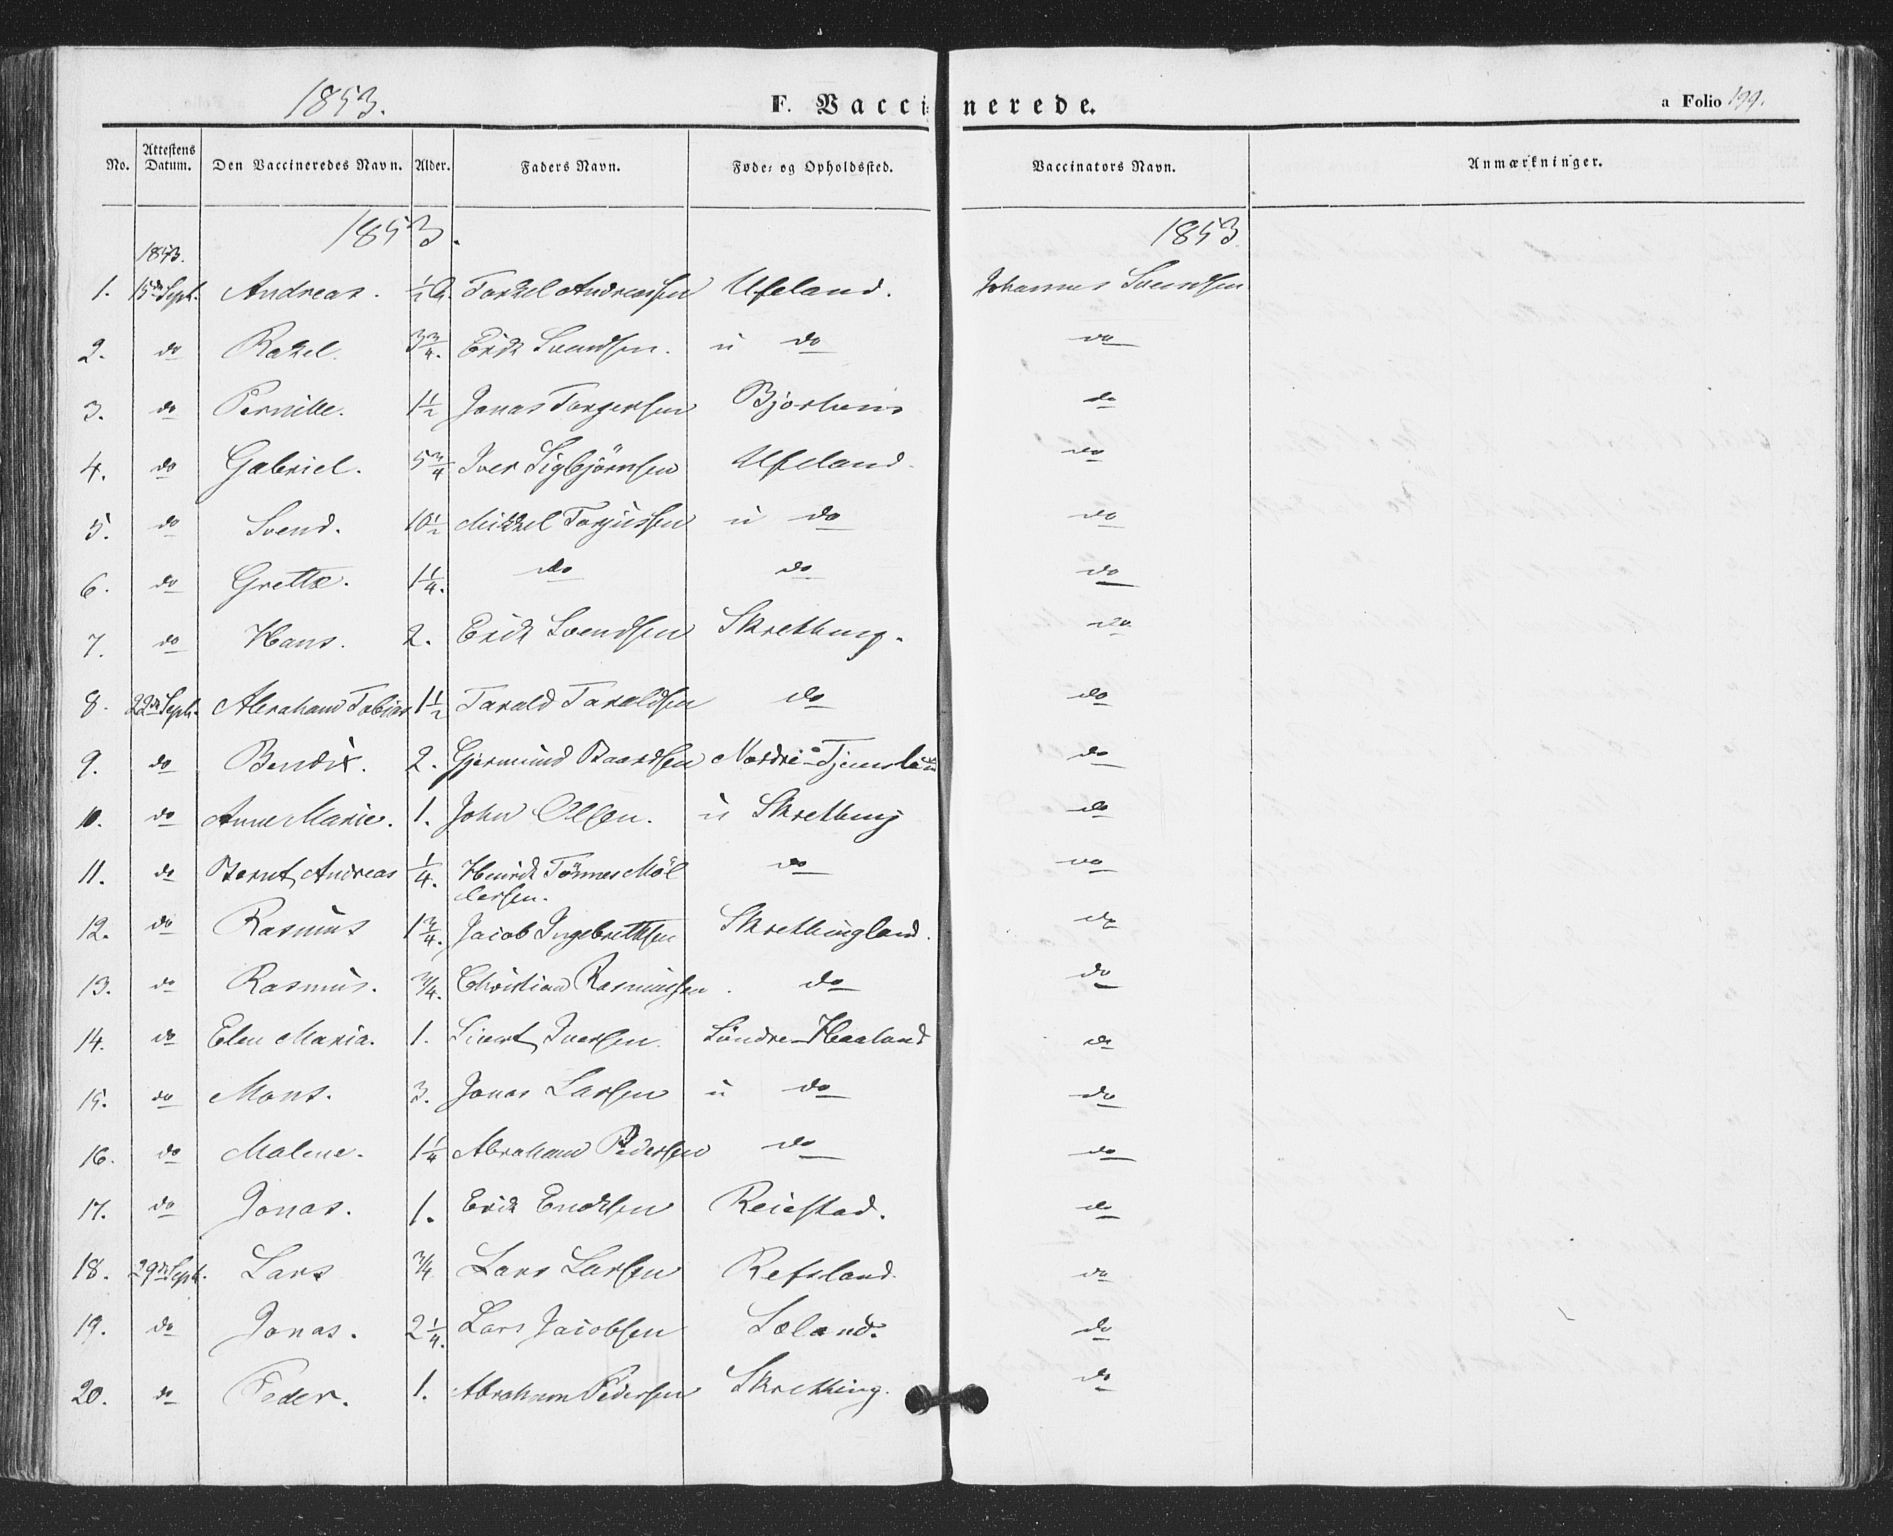 1853. F. Vaccinerede. a Folio 199.
No. Attestens Datum. Den Vaccineredes Navn. Alder. Faders Navn. Føde- og Opholdssted. Vaccinators Navn. Anmærkninger.
1853. 1853.
1853.
1. 15de Sept. Andreas. ½ A. Torkel Andreassen Ufeland. Johannes Svendsen
2. do Rakel. 3¾. Erik Svendsen. u do do
3. do Pernille. 1½ Jonas Torgersen do
4. do Gabriel. 5¾ Iver Sigbjørnsen Ufeland. do
5. do Svend. 10½ Mikkel Torjussen u do do
6. do Grethe. 1¼. do do do
7. do Hans. 2. Erik Svendsen Skretting. do
8. 22de Sept. Abraham Tobias 1½ Tarald Taraldsen do do
9. do Bendix. 2. Gjermund Baardsen Nordre-Tjemsland do
10. do Anne Marie. 1. John Olsen. u Skretting do
11. do Bernt Andreas ¼. Henrik Tønnes Møl do do
lersen.
12. do Rasmus 1¾. Jacob Ingebretsen Skrettingland. do
13. do Rasmus. ¾. Christian Rasmussen. do do
14. do Elen Maria. 1. Sivert Iversen. Søndre-Haaland do
15. do Mons. 3. Jonas Larsen u do do
16. do Malene. 1¼ Abraham Pedersen do do
17. do Jonas. 1. Erik Enoksen Reiestad. do
18. 29de Sept. Lars ¾ Lars Larsen Refsland. do
19. do Jonas. 2¼. Lars Jacobsen Søland. do
20. do Peder. 1. Abraham Pedersen Skretting. do